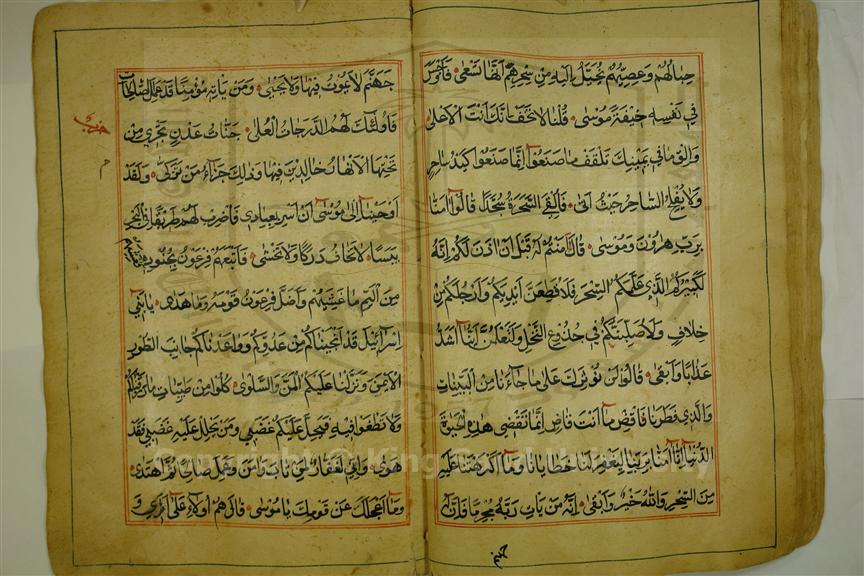 حِبَالُهُمْ وَعِصِيُّهُمْ يُخَيَّلُ إِلَيْهِ مِنْ سِحْرِهِمْ أَنَّهَا تَسْعَى فَأَوْجَسَ
فِي نَفْسِهِ خِيفَةً مُوسَى قُلْنَا لَا تَخَفْ إِنَّكَ أَنْتَ الْأَعْلَى
وَأَلْقِ مَا فِي يَمِينِكَ تَلْقَفْ مَا صَنَعُوا إِنَّمَا صَنَعُوا كَيْدُ سَاحِرٍ
وَلَا يُفْلِحُ السَّاحِرُ حَيْثُ أَتَى فَأُلْقِيَ السَّحَرَةُ سُجَّدًا قَالُوا آمَنَّا
بِرَبِّ هَارُونَ وَمُوسَى قَالَ آمَنْتُمْ لَهُ قَبْلَ أَنْ آذَنَ لَكُمْ إِنَّهُ
لَكَبِيرُكُمُ الَّذِي عَلَّمَكُمُ السِّحْرَ فَلَأُقَطِّعَنَّ أَيْدِيَكُمْ وَأَرْجُلَكُمْ مِنْ
خِلَافٍ وَلَأُصَلِّبَنَّكُمْ فِي جُذُوعِ النَّخْلِ وَلَتَعْلَمُنَّ أَيُّنَا أَشَدُّ
عَذَابًا وَأَبْقَى قَالُوا لَنْ نُؤْثِرَكَ عَلَى مَا جَاءَنَا مِنَ الْبَيِّنَاتِ
وَالَّذِي فَطَرَنَا فَاقْضِ مَا أَنْتَ قَاضٍ إِنَّمَا تَقْضِي هَذِهِ الْحَيٰوةَ
الدُّنْيَا إِنَّا آمَنَّا بِرَبِّنَا لِيَغْفِرَ لَنَا خَطَايَانَا وَمَا أَكْرَهْتَنَا عَلَيْهِ
مِنَ السِّحْرِ وَاللهُ خَيْرٌ وَأَبْقَى إِنَّهُ مَنْ يَأْتِ رَبَّهُ مُجْرِمًا فَإِنَّ لَهُ
جَهَنَّمَ لَا يَمُوتُ فِيهَا وَلَا يَحْيَى وَمَنْ يَأْتِهِ مُؤْمِنًا قَدْ عَمِلَ الصَّالِحَاتِ
فَأُولَئِكَ لَهُمُ الدَّرَجَاتُ الْعُلَى جَنَّاتُ عَدْنٍ تَجْرِي مِنْ
تَحْتِهَا الْأَنْهَارُ خَالِدِينَ فِيهَا وَذَلِكَ جَزَاءُ مَنْ تَزَكَّى وَلَقَدْ
أَوْحَيْنَا إِلَى مُوسَى أَنْ أَسْرِ بِعِبَادِي فَاضْرِبْ لَهُمْ طَرِيقًا فِي الْبَحْرِ
يَبَسًا لَا تَخَافُ دَرَكًا وَلَا تَخْشَى فَأَتْبَعَهُمْ فِرْعَوْنُ بِجُنُودِهِ فَغَشِيَهُمْ
مِنَ الْيَمِّ مَا غَشِيَهُمْ وَأَضَلَّ فِرْعَوْنُ قَوْمَهُ وَمَا هَدَى يَا بَنِي
إِسْرَائِيلَ قَدْ أَنْجَيْنَاكُمْ مِنْ عَدُوِّكُمْ وَوَاعَدْنَاكُمْ جَانِبَ الطُّورِ
الْأَيْمَنَ وَنَزَّلْنَا عَلَيْكُمُ الْمَنَّ وَالسَّلْوَى كُلُوا مِنْ طَيِّبَاتِ مَا رَزَقْنَاكُمْ
وَلَا تَطْغَوْا فِيهِ فَيَحِلَّ عَلَيْكُمْ غَضَبِي وَمَنْ يَحْلِلْ عَلَيْهِ غَضَبِي فَقَدْ
هَوَى وَإِنِّي لَغَفَّارٌ لِمَنْ تَابَ وَآمَنَ وَعَمِلَ صَالِحًا ثُمَّ اهْتَدَى
وَمَا أَعْجَلَكَ عَنْ قَوْمِكَ يَا مُوسَى قَالَ هُمْ أُولَاءِ عَلَى أَثَرِي وَ